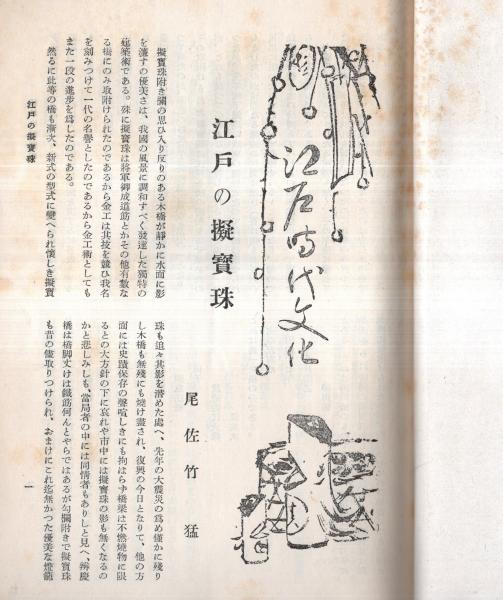 江戶時代文化
江戶の擬寶珠
尾佐竹 猛
擬寶珠附き欄の思ひ入り反りのある木橋が靜かに水面に影
を蘸すの優美さは、我國の風景に調和すべく發達した獨特の
建築術である。殊に擬寶珠は將軍御成道筋とかその他有數な
る橋にのみ取附けられたのであるから金工は其技を競ひ我名
を刻みつけて一代の名譽としたのであるから金工術としても
また一段の進步を爲したのである。
然るに此等の橋も漸次、新式の型式に變へられ懷しき擬寶
珠も追々其影を潛めた處へ、先年の大震災の爲め僅かに殘り
し木橋も無殘にも燒け盡され、復興の今日となりて、他の方
面には史蹟保存の聲喧しきにも拘はらず橋梁は不燃燒物に限
るとの大方針の下に哀れや市中には擬寶珠の影も無くなるの
かと悲しみしも、當局者の中には同情者もありしと見へ、辨慶
橋は橋脚丈けは鐵筋何んとやらではあるが勾欄附きで擬寶珠
も昔の儘取りつけられ、おまけにこれ迄無かつた優美な燈籠
江戶の擬寶珠
一